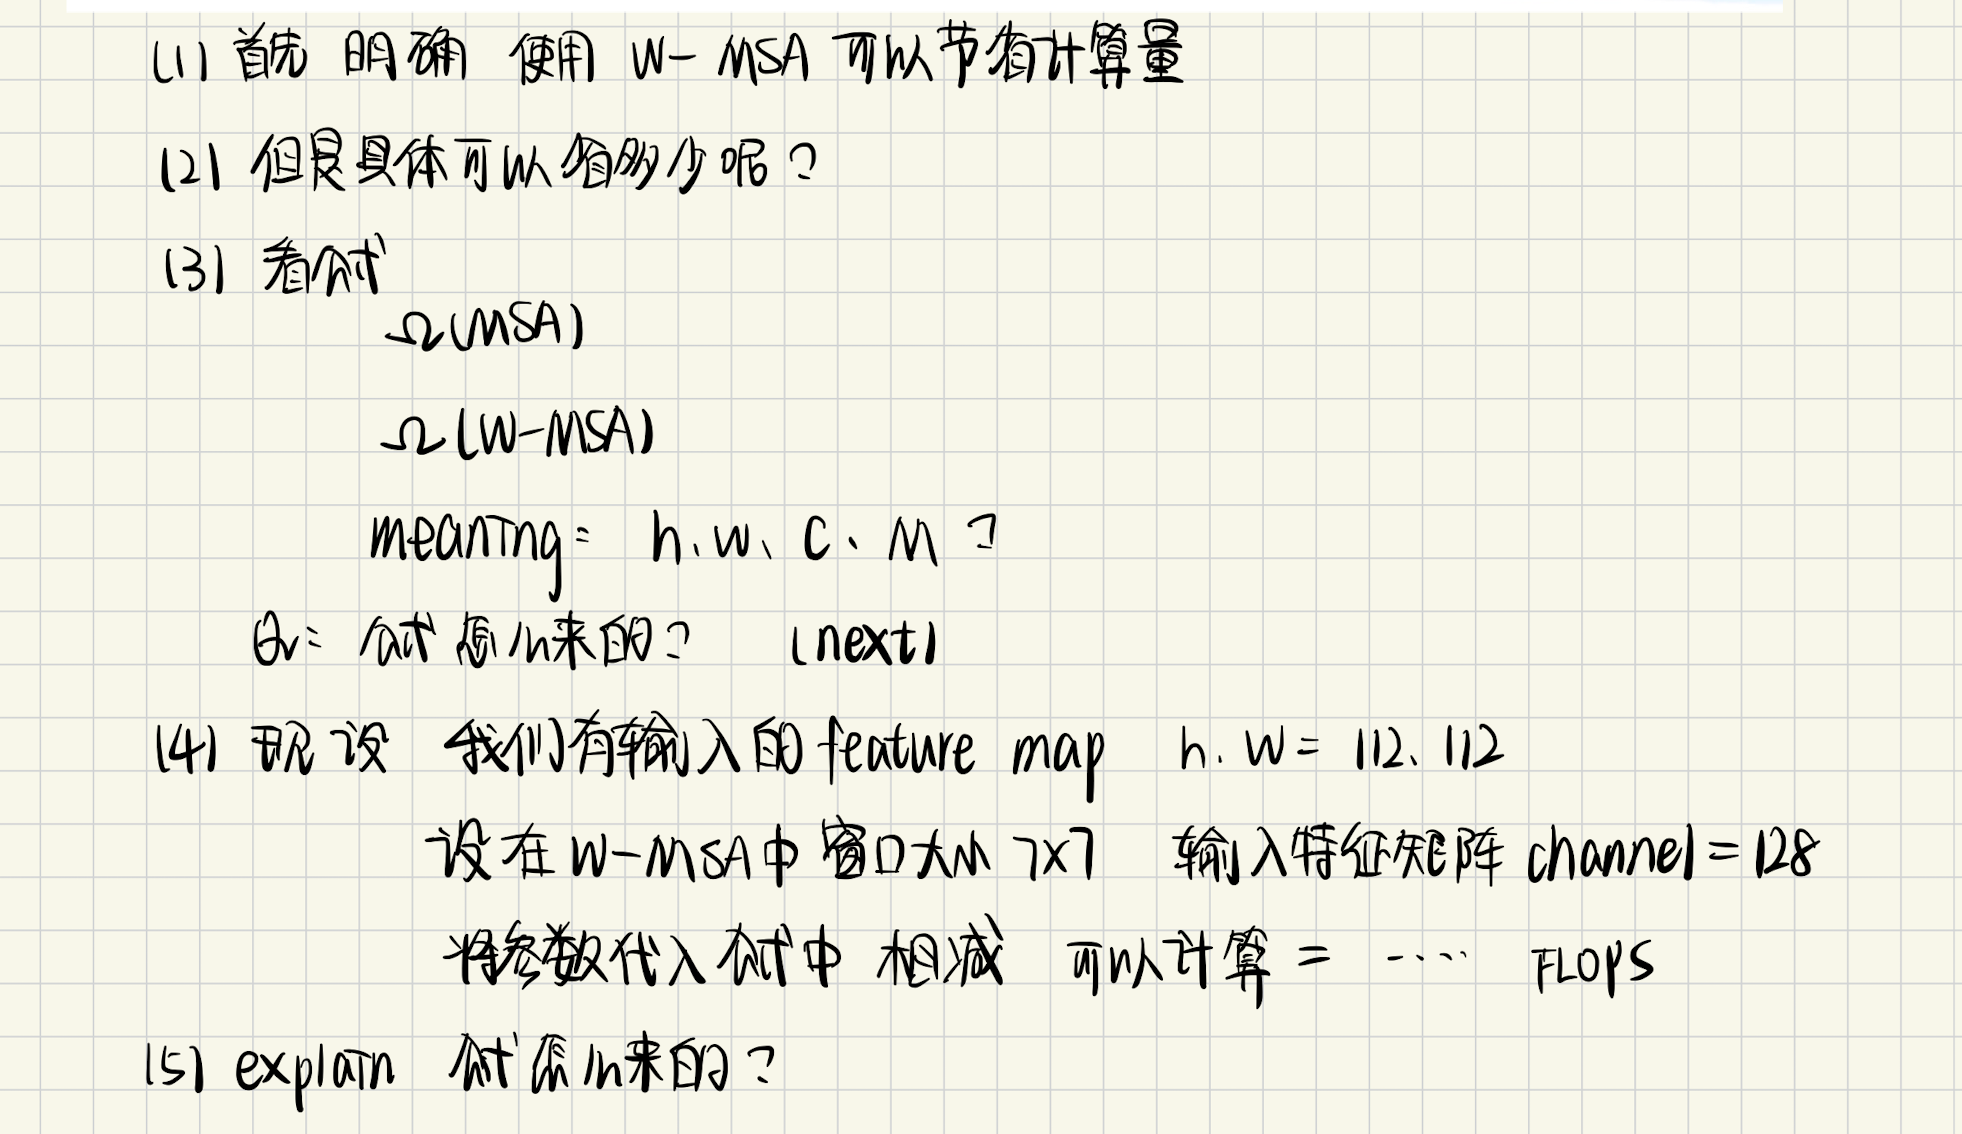 (1) 首先 明确 使用 W-MSA 可以节省计算量
(2) 但是具体可以省多少呢?
(3) 看公式
Ω(MSA)
Ω(W-MSA)
meaning: h、w、C、M ?
Q: 公式怎么来的? (next)
(4) 现设 我们有输入的 feature map h、w = 112、112
设在 W-MSA中 窗口大小 7x7 输入特征矩阵 channel = 128
将参数代入公式中 相减 可以计算 = ···· FLOPs
(5) explain 公式怎么来的?